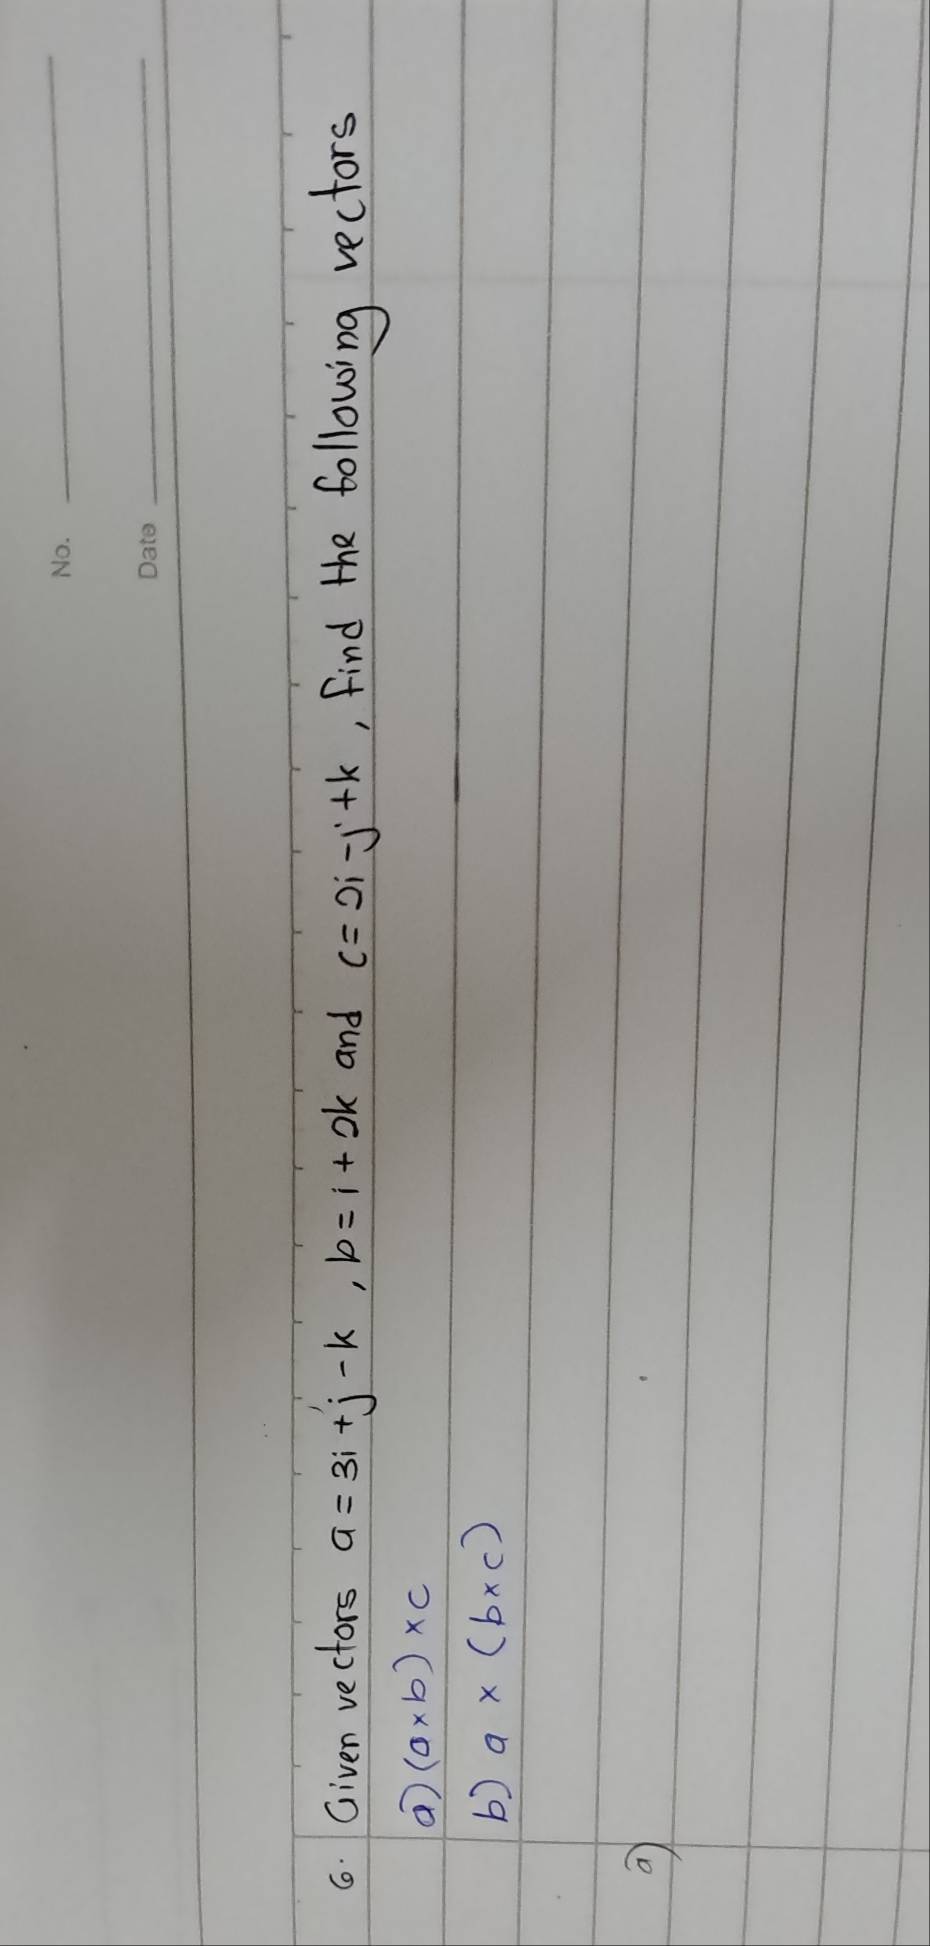 No.
Date
6. Given vectors a = 3i + j - k , b = i + 2k and c = 2i - j + k , find the following vectors
a) (a × b) × c
b) a × (b × c)
a)